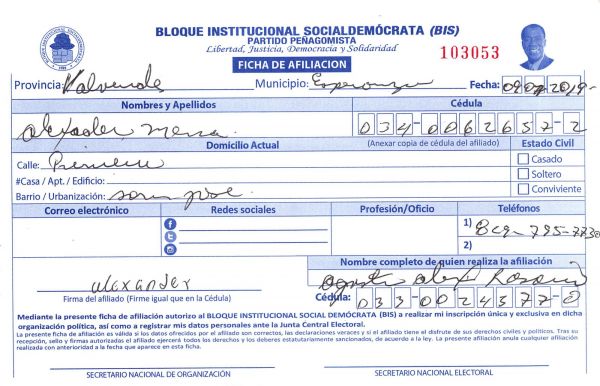 BLOQUE INSTITUCIONAL SOCIALDEMÓCRATA (BIS)
PARTIDO PEÑAGOMISTA
Libertad, Justicia, Democracia y Solidaridad
FICHA DE AFILIACION
103053
Provincia: Valverde Municipio: Esperanza Fecha: 09072019
Nombres y Apellidos Cédula
Mena 034-0062657-2
Domicilio Actual (Anexar copia de cédula del afiliado) Estado Civil
Calle: Casado
#Casa / Apt. / Edificio: Soltero
Barrio / Urbanización: San Jose Conviviente
Correo electrónico Redes sociales Profesión/Oficio Teléfonos
1) 829-795-7730
2)
Nombre completo de quien realiza la afiliación
alexander
Firma del afiliado (Firme igual que en la Cédula) Cédula: 033-0024377-8
Mediante la presente ficha de afiliación autorizo al BLOQUE INSTITUCIONAL SOCIAL DEMÓCRATA (BIS) a realizar mi inscripción única y exclusiva en dicha
organización política, así como a registrar mis datos personales ante la Junta Central Electoral.
La presente ficha de afiliación es válida si los datos ofrecidos por el afiliado son correctos, las declaraciones veraces y si el afiliado tiene el disfrute de sus derechos civiles y políticos. Tras su
recepción, sello y firmas autorizadas el afiliado ejercerá todos los derechos y los deberes estatutariamente sancionados, de acuerdo a la ley. La presente afiliación anula cualquier afiliación
realizada con anterioridad a la fecha que aparece en esta ficha.
SECRETARIO NACIONAL DE ORGANIZACIÓN SECRETARIO NACIONAL ELECTORAL